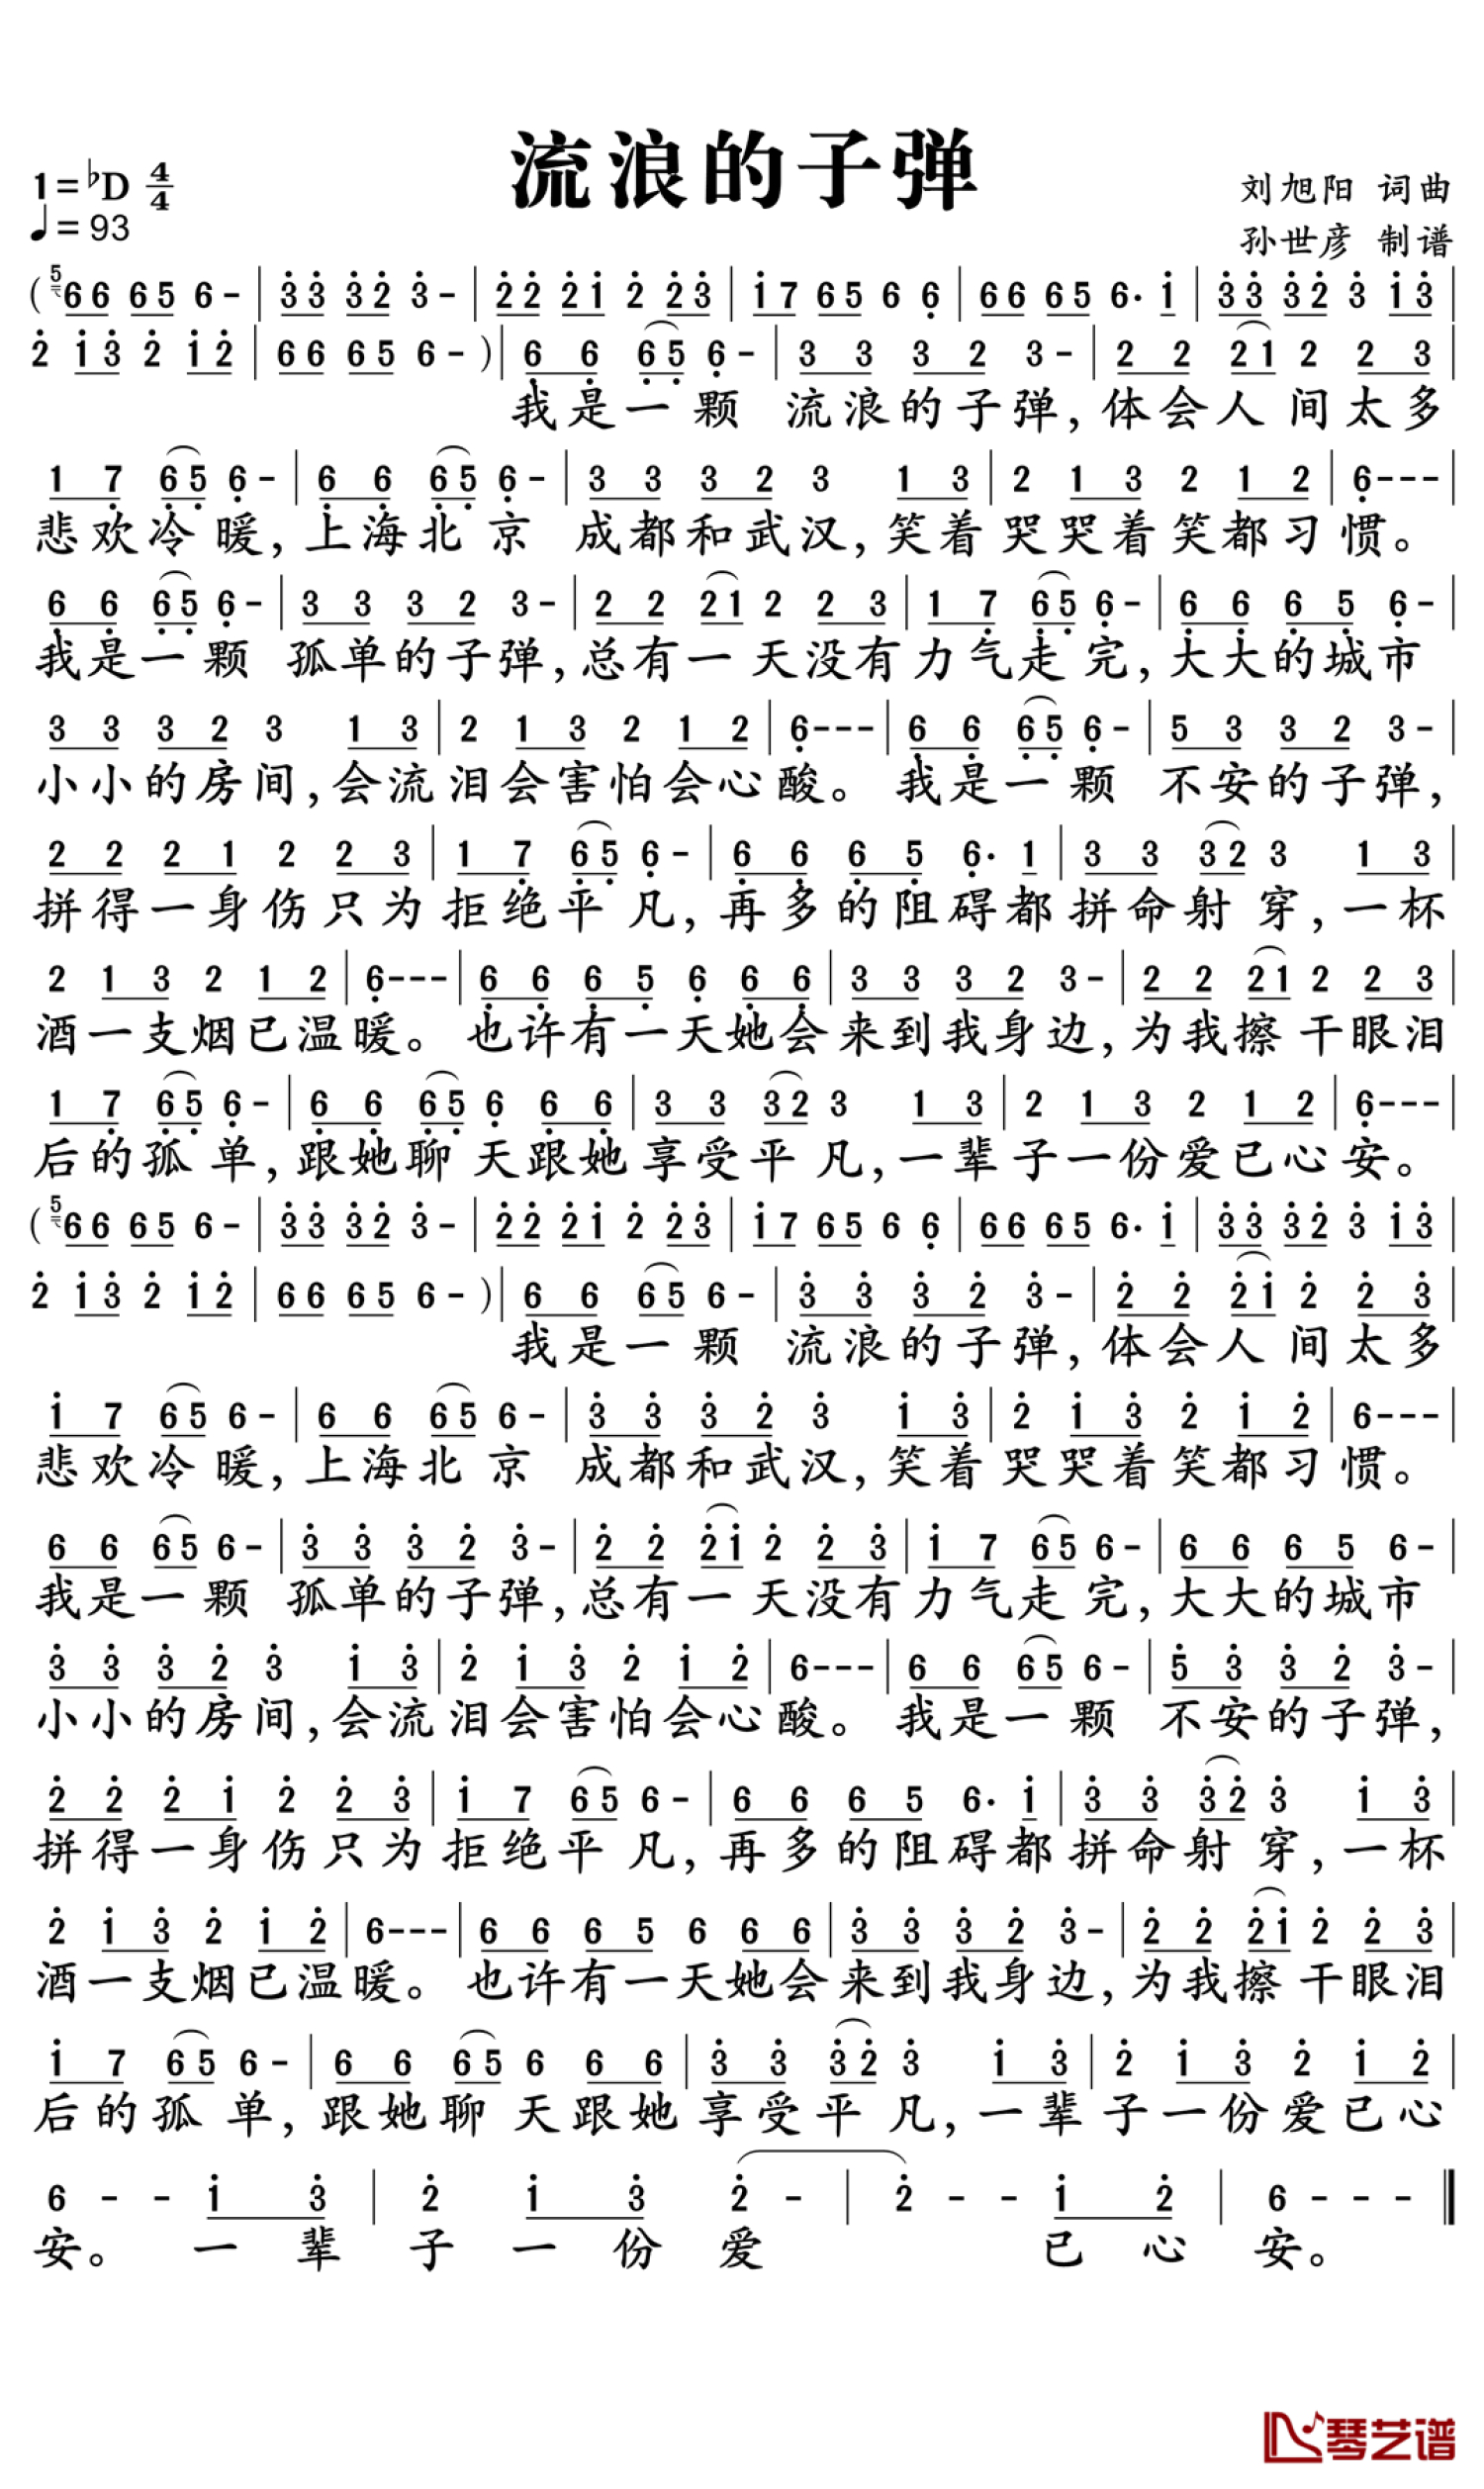 流浪的子弹
1=♭D 4/4
♩=93
刘旭阳 词曲
孙世彦 制谱
(5 66 65 6- | 3̇3̇ 3̇2̇ 3̇- | 2̇2̇ 2̇1̇ 2̇ 2̇3̇ | 1̇7 65 6 6̣ | 66 65 6· 1̇ | 3̇3̇ 3̇2̇ 3̇ 1̇3̇ |
2̇ 1̇3̇ 2̇ 1̇2̇ | 66 65 6- )| 6̣ 6̣ 6̣5̣ 6̣- | 3 3 3 2 3- | 2 2 21 2 2 3 |
我是一颗 流浪的子弹,体会人间太多
1 7̣ 6̣5̣ 6̣- | 6̣ 6̣ 6̣5̣ 6̣- | 3 3 3 2 3 1 3 | 2 1 3 2 1 2 | 6̣--- |
悲欢冷暖,上海北京 成都和武汉,笑着哭哭着笑都习惯。
6̣ 6̣ 6̣5̣ 6̣- | 3 3 3 2 3- | 2 2 21 2 2 3 | 1 7̣ 6̣5̣ 6̣- | 6̣ 6̣ 6̣ 5̣ 6̣- |
我是一颗 孤单的子弹,总有一天没有力气走完,大大的城市
3 3 3 2 3 1 3 | 2 1 3 2 1 2 | 6̣--- | 6̣ 6̣ 6̣5̣ 6̣- | 5 3 3 2 3- |
小小的房间,会流泪会害怕会心酸。我是一颗 不安的子弹,
2 2 2 1 2 2 3 | 1 7̣ 6̣5̣ 6̣- | 6̣ 6̣ 6̣ 5̣ 6̣· 1 | 3 3 32 3 1 3 |
拼得一身伤只为拒绝平凡,再多的阻碍都拼命射穿,一杯
2 1 3 2 1 2 | 6̣--- | 6̣ 6̣ 6̣ 5̣ 6̣ 6̣ 6̣ | 3 3 3 2 3- | 2 2 21 2 2 3 |
酒一支烟已温暖。也许有一天她会来到我身边,为我擦干眼泪
1 7̣ 6̣5̣ 6̣- | 6̣ 6̣ 6̣5̣ 6̣ 6̣ 6̣ | 3 3 32 3 1 3 | 2 1 3 2 1 2 | 6̣--- |
后的孤单,跟她聊天跟她享受平凡,一辈子一份爱已心安。
(5 66 65 6- | 3̇3̇ 3̇2̇ 3̇- | 2̇2̇ 2̇1̇ 2̇ 2̇3̇ | 1̇7 65 6 6̣ | 66 65 6· 1̇ | 3̇3̇ 3̇2̇ 3̇ 1̇3̇ |
2̇ 1̇3̇ 2̇ 1̇2̇ | 66 65 6- )| 6 6 65 6- | 3̇ 3̇ 3̇ 2̇ 3̇- | 2̇ 2̇ 2̇1̇ 2̇ 2̇ 3̇ |
我是一颗 流浪的子弹,体会人间太多
1̇ 7 65 6- | 6 6 65 6- | 3̇ 3̇ 3̇ 2̇ 3̇ 1̇ 3̇ | 2̇ 1̇ 3̇ 2̇ 1̇ 2̇ | 6--- |
悲欢冷暖,上海北京 成都和武汉,笑着哭哭着笑都习惯。
6 6 65 6- | 3̇ 3̇ 3̇ 2̇ 3̇- | 2̇ 2̇ 2̇1̇ 2̇ 2̇ 3̇ | 1̇ 7 65 6- | 6 6 6 5 6- |
我是一颗 孤单的子弹,总有一天没有力气走完,大大的城市
3̇ 3̇ 3̇ 2̇ 3̇ 1̇ 3̇ | 2̇ 1̇ 3̇ 2̇ 1̇ 2̇ | 6--- | 6 6 65 6- | 5̇ 3̇ 3̇ 2̇ 3̇- |
小小的房间,会流泪会害怕会心酸。我是一颗 不安的子弹,
2̇ 2̇ 2̇ 1̇ 2̇ 2̇ 3̇ | 1̇ 7 65 6- | 6 6 6 5 6· 1̇ | 3̇ 3̇ 3̇2̇ 3̇ 1̇ 3̇ |
拼得一身伤只为拒绝平凡,再多的阻碍都拼命射穿,一杯
2̇ 1̇ 3̇ 2̇ 1̇ 2̇ | 6--- | 6 6 6 5 6 6 6 | 3̇ 3̇ 3̇ 2̇ 3̇- | 2̇ 2̇ 2̇1̇ 2̇ 2̇ 3̇ |
酒一支烟已温暖。也许有一天她会来到我身边,为我擦干眼泪
1̇ 7 65 6- | 6 6 65 6 6 6 | 3̇ 3̇ 3̇2̇ 3̇ 1̇ 3̇ | 2̇ 1̇ 3̇ 2̇ 1̇ 2̇ |
后的孤单,跟她聊天跟她享受平凡,一辈子一份爱已心
6 - - 1̇ 3̇ | 2̇ 1̇ 3̇ 2̇ - | 2̇ - - 1̇ 2̇ | 6 - - - ‖
安。一辈子一份爱 已心安。
琴艺谱